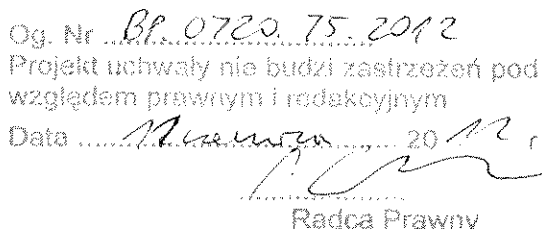 Og. Nr BP. 0720. 75. 2012
Projekt uchwały nie budzi zastrzeżeń pod
względem prawnym i redakcyjnym
Data 11 czerwca 2012 r
Radca Prawny